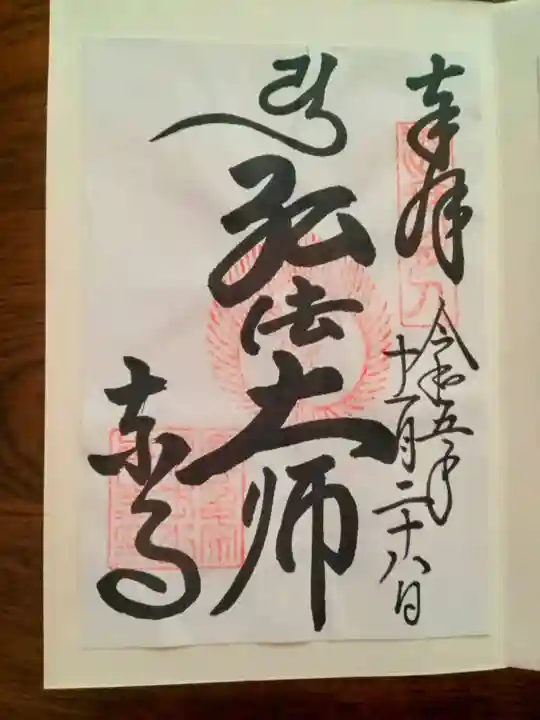 奉拝
令和五年
十一月二十八日
弘法大师
東寺